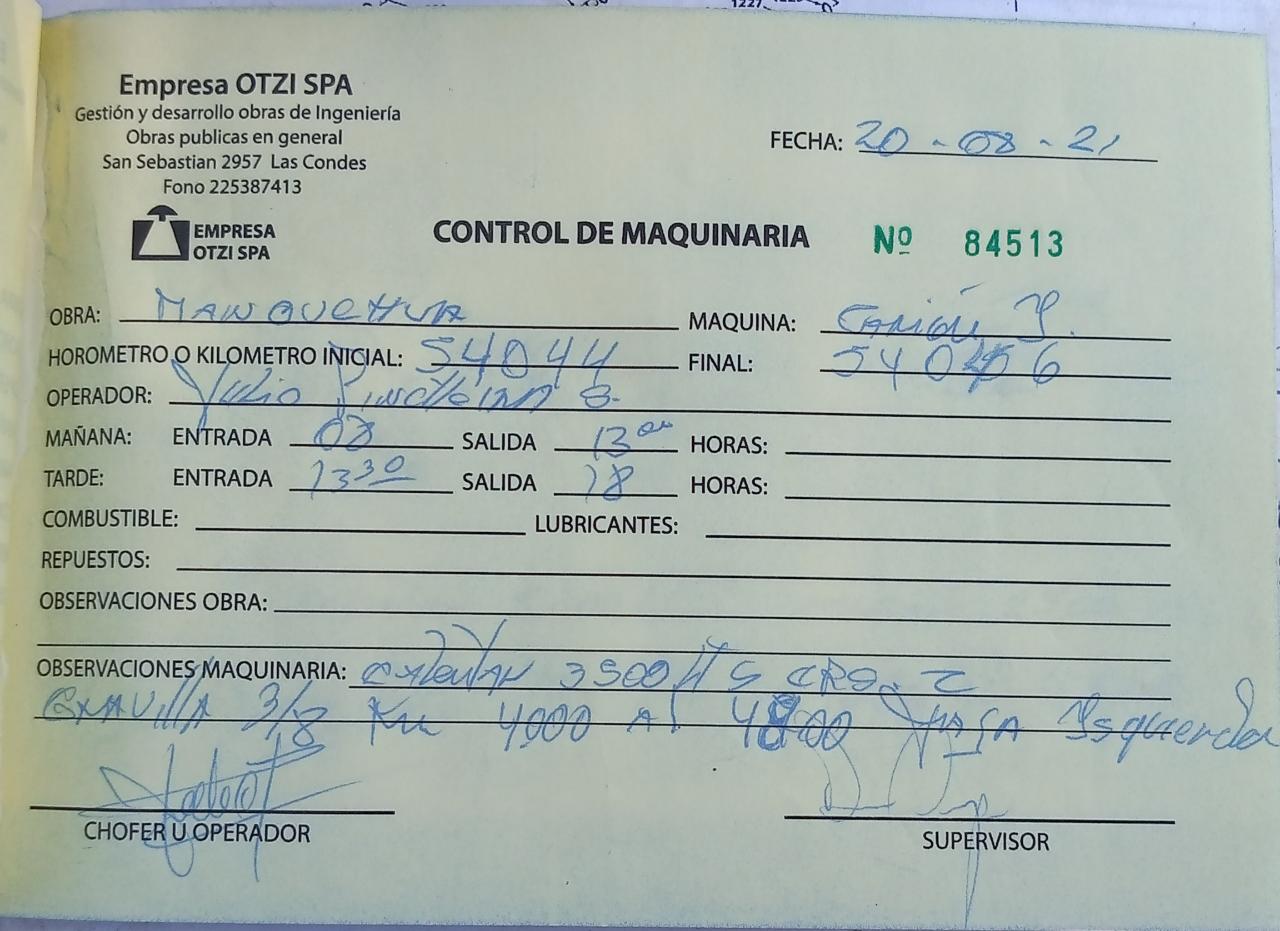 1227
Empresa OTZI SPA
Gestión y desarrollo obras de Ingeniería
Obras publicas en general
San Sebastian 2957 Las Condes
Fono 225387413
FECHA: 20 - 08 - 21
EMPRESA
OTZI SPA
CONTROL DE MAQUINARIA Nº 84513
OBRA: MANQUEHUA MAQUINA: CAMIÓN
HOROMETRO O KILOMETRO INICIAL: 54044 FINAL:
OPERADOR: Julio
MAÑANA: ENTRADA 08 SALIDA 13 00 HORAS:
TARDE: ENTRADA 13 30 SALIDA 18 HORAS:
COMBUSTIBLE: LUBRICANTES:
REPUESTOS:
OBSERVACIONES OBRA:
OBSERVACIONES MAQUINARIA: 3500 LTS CRS. 2
GRAVILLA 3/8 Km 4000 Al 4800 FAJA Isquierda
CHOFER U OPERADOR
SUPERVISOR